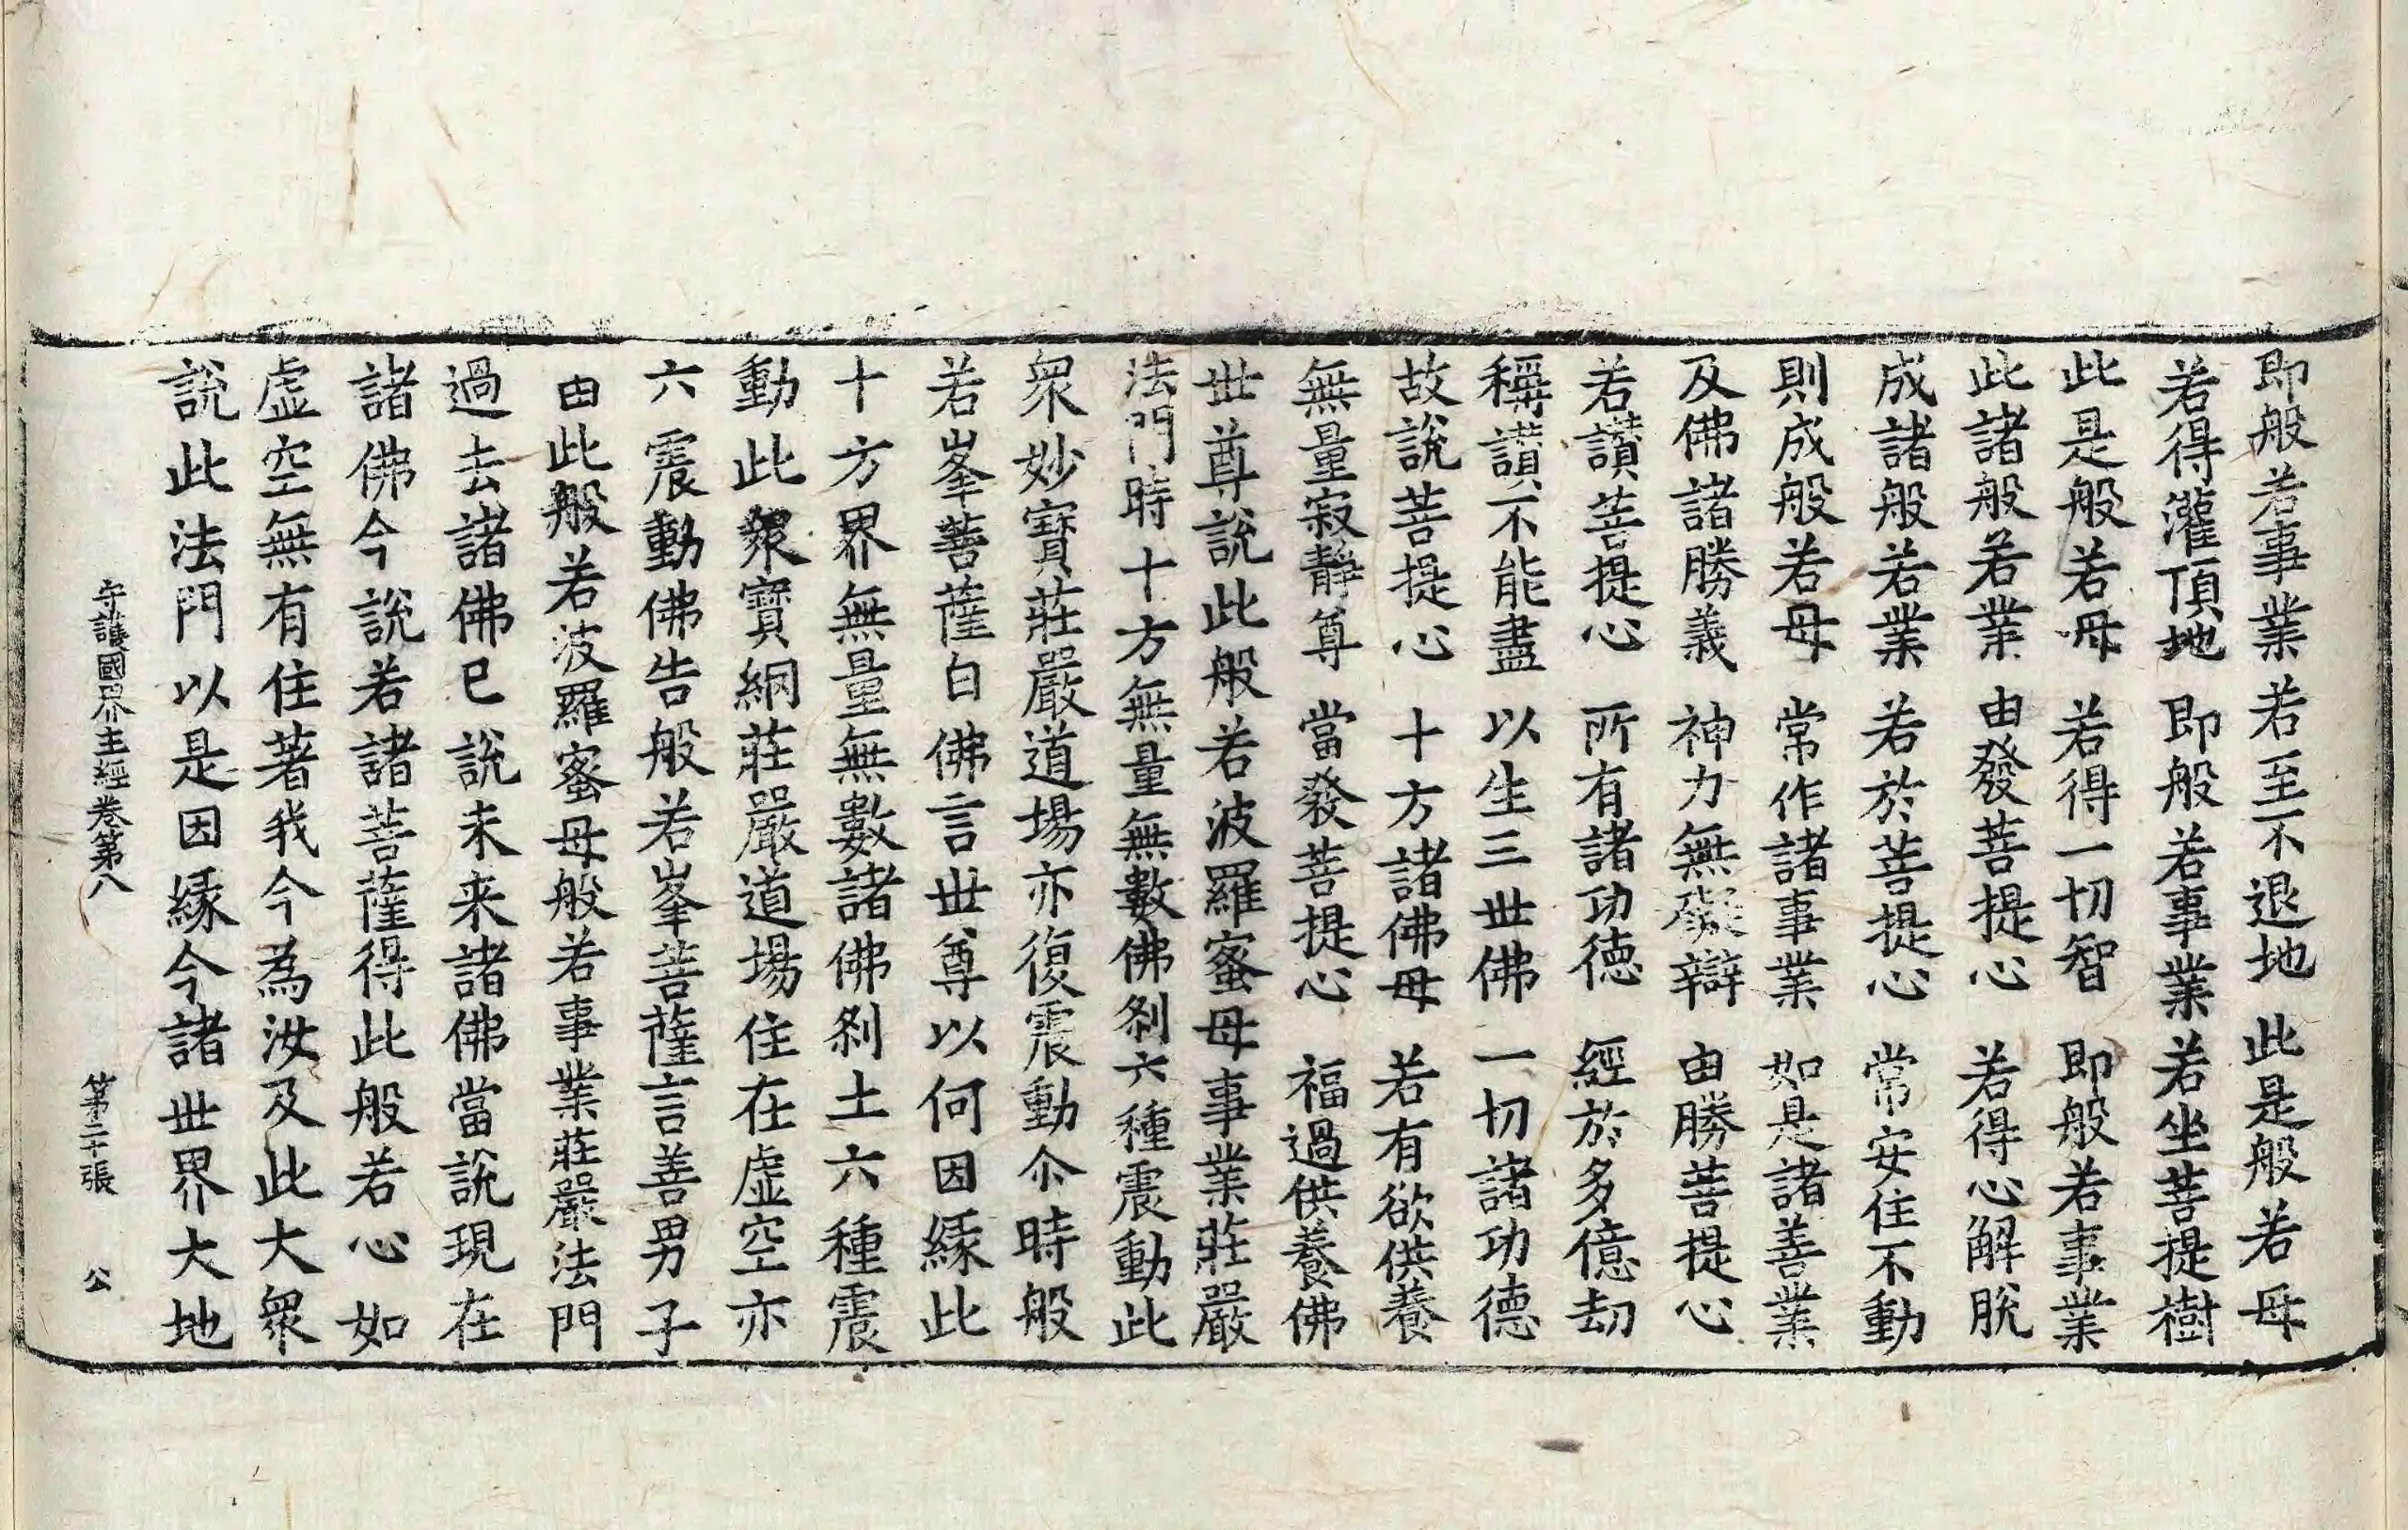 即般若事業若至不退地　此是般若母
若得灌頂地　即般若事業若坐菩提樹
此是般若母　若得一切智　即般若事業
此諸般若業　由發菩提心　若得心解脫
成諸般若業　若於菩提心　常安住不動
則成般若母　常作諸事業　如是諸善業
及佛諸勝義　神力無礙辯　由勝菩提心
若讚菩提心　所有諸功德　經於多億劫
稱讚不能盡　以生三世佛　一切諸功德
故說菩提心　十方諸佛母　若有欲供養
無量寂靜尊　當發菩提心　福過供養佛
世尊說此般若波羅蜜母事業莊嚴
法門時十方無量無數佛剎六種震動此
衆妙寶莊嚴道場亦復震動尒時般
若峯菩薩白佛言世尊以何因緣此
十方界無量無數諸佛剎土六種震
動此衆寶網莊嚴道場住在虛空亦
六震動佛告般若峯菩薩言善男子
由此般若波羅蜜母般若事業莊嚴法門
過去諸佛已說未来諸佛當說現在
諸佛今說若諸菩薩得此般若心如
虛空無有住著我今為汝及此大衆
說此法門以是因緣今諸世界大地
守護國界主經卷第八　第二十張　公